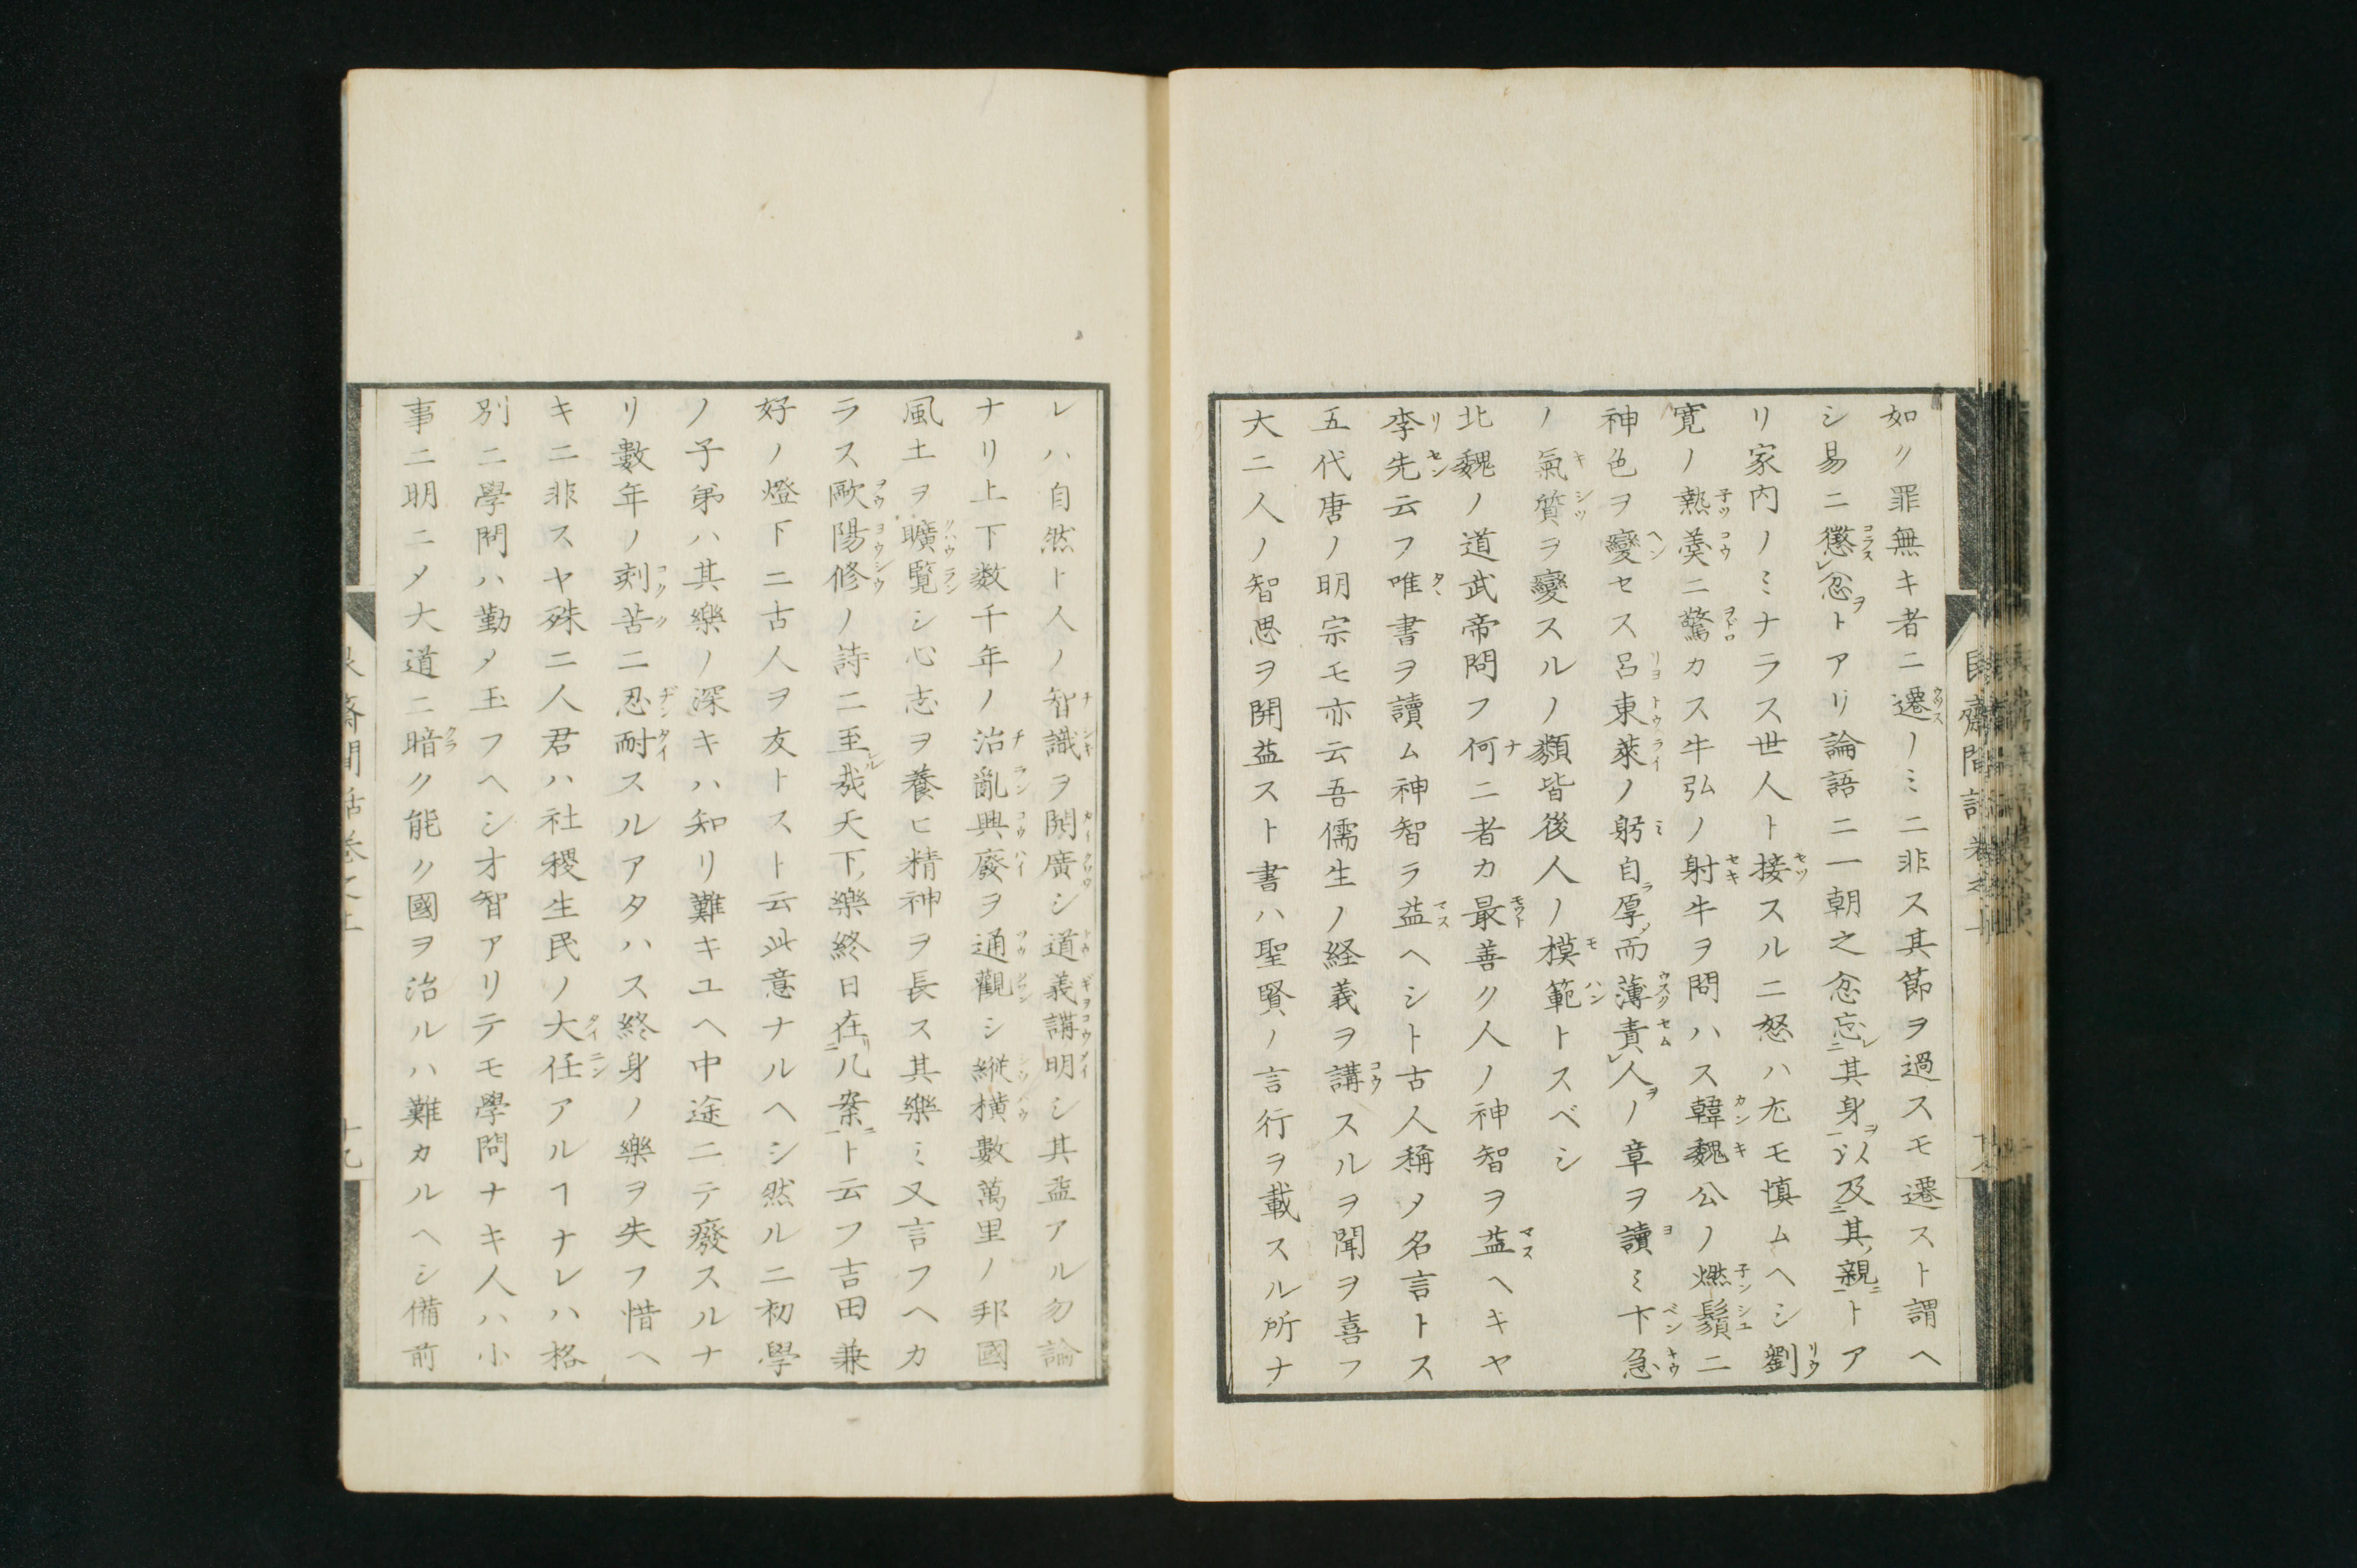 如ク罪無キ者ニ遷ノミニ非ス其節ヲ過スモ遷スト謂ヘ
シ易ニ懲忿トアリ論語ニ一朝之忿忘其身以及其親トア
リ家内ノミナラス世人ト接スルニ怒ハ尤モ慎ムヘシ劉
寛ノ熱羮ニ驚カス牛弘ノ射牛ヲ問ハス韓魏公ノ燃鬚ニ
神色ヲ變セス呂東萊ノ躬自厚而薄責人ノ章ヲ讀ミ卞急
ノ氣質ヲ變スルノ類皆後人ノ模範トスベシ
北魏ノ道武帝問フ何ニ者カ最善ク人ノ神智ヲ益ヘキヤ
李先云フ唯書ヲ讀ム神智ラ益ヘシト古人稱メ名言トス
五代唐ノ明宗モ亦云吾儒生ノ経義ヲ講スルヲ聞ヲ喜フ
大ニ人ノ智思ヲ開益スト書ハ聖賢ノ言行ヲ載スル所ナ
レハ自然ト人ノ智識ヲ開廣シ道義講明シ其益アル勿論
ナリ上下数千年ノ治亂興廢ヲ通觀シ縦横數萬里ノ邦國
風土ヲ曠覧シ心志ヲ養ヒ精神ヲ長ス其樂ミ又言フヘカ
ラス歐陽修ノ詩ニ至哉天下樂終日在几案ト云フ吉田兼
好ノ燈下ニ古人ヲ友トスト云此意ナルヘシ然ルニ初學
ノ子弟ハ其樂ノ深キハ知リ難キユヘ中途ニテ癈スルナ
リ數年ノ刻苦ニ忍耐スルアタハス終身ノ樂ヲ失フ惜ヘ
キニ非スヤ殊ニ人君ハ社稷生民ノ大任アルヿナレハ格
別ニ學問ハ勤メ玉フヘシ才智アリテモ學問ナキ人ハ小
事ニ明ニメ大道ニ暗ク能ク國ヲ治ルハ難カルヘシ備前